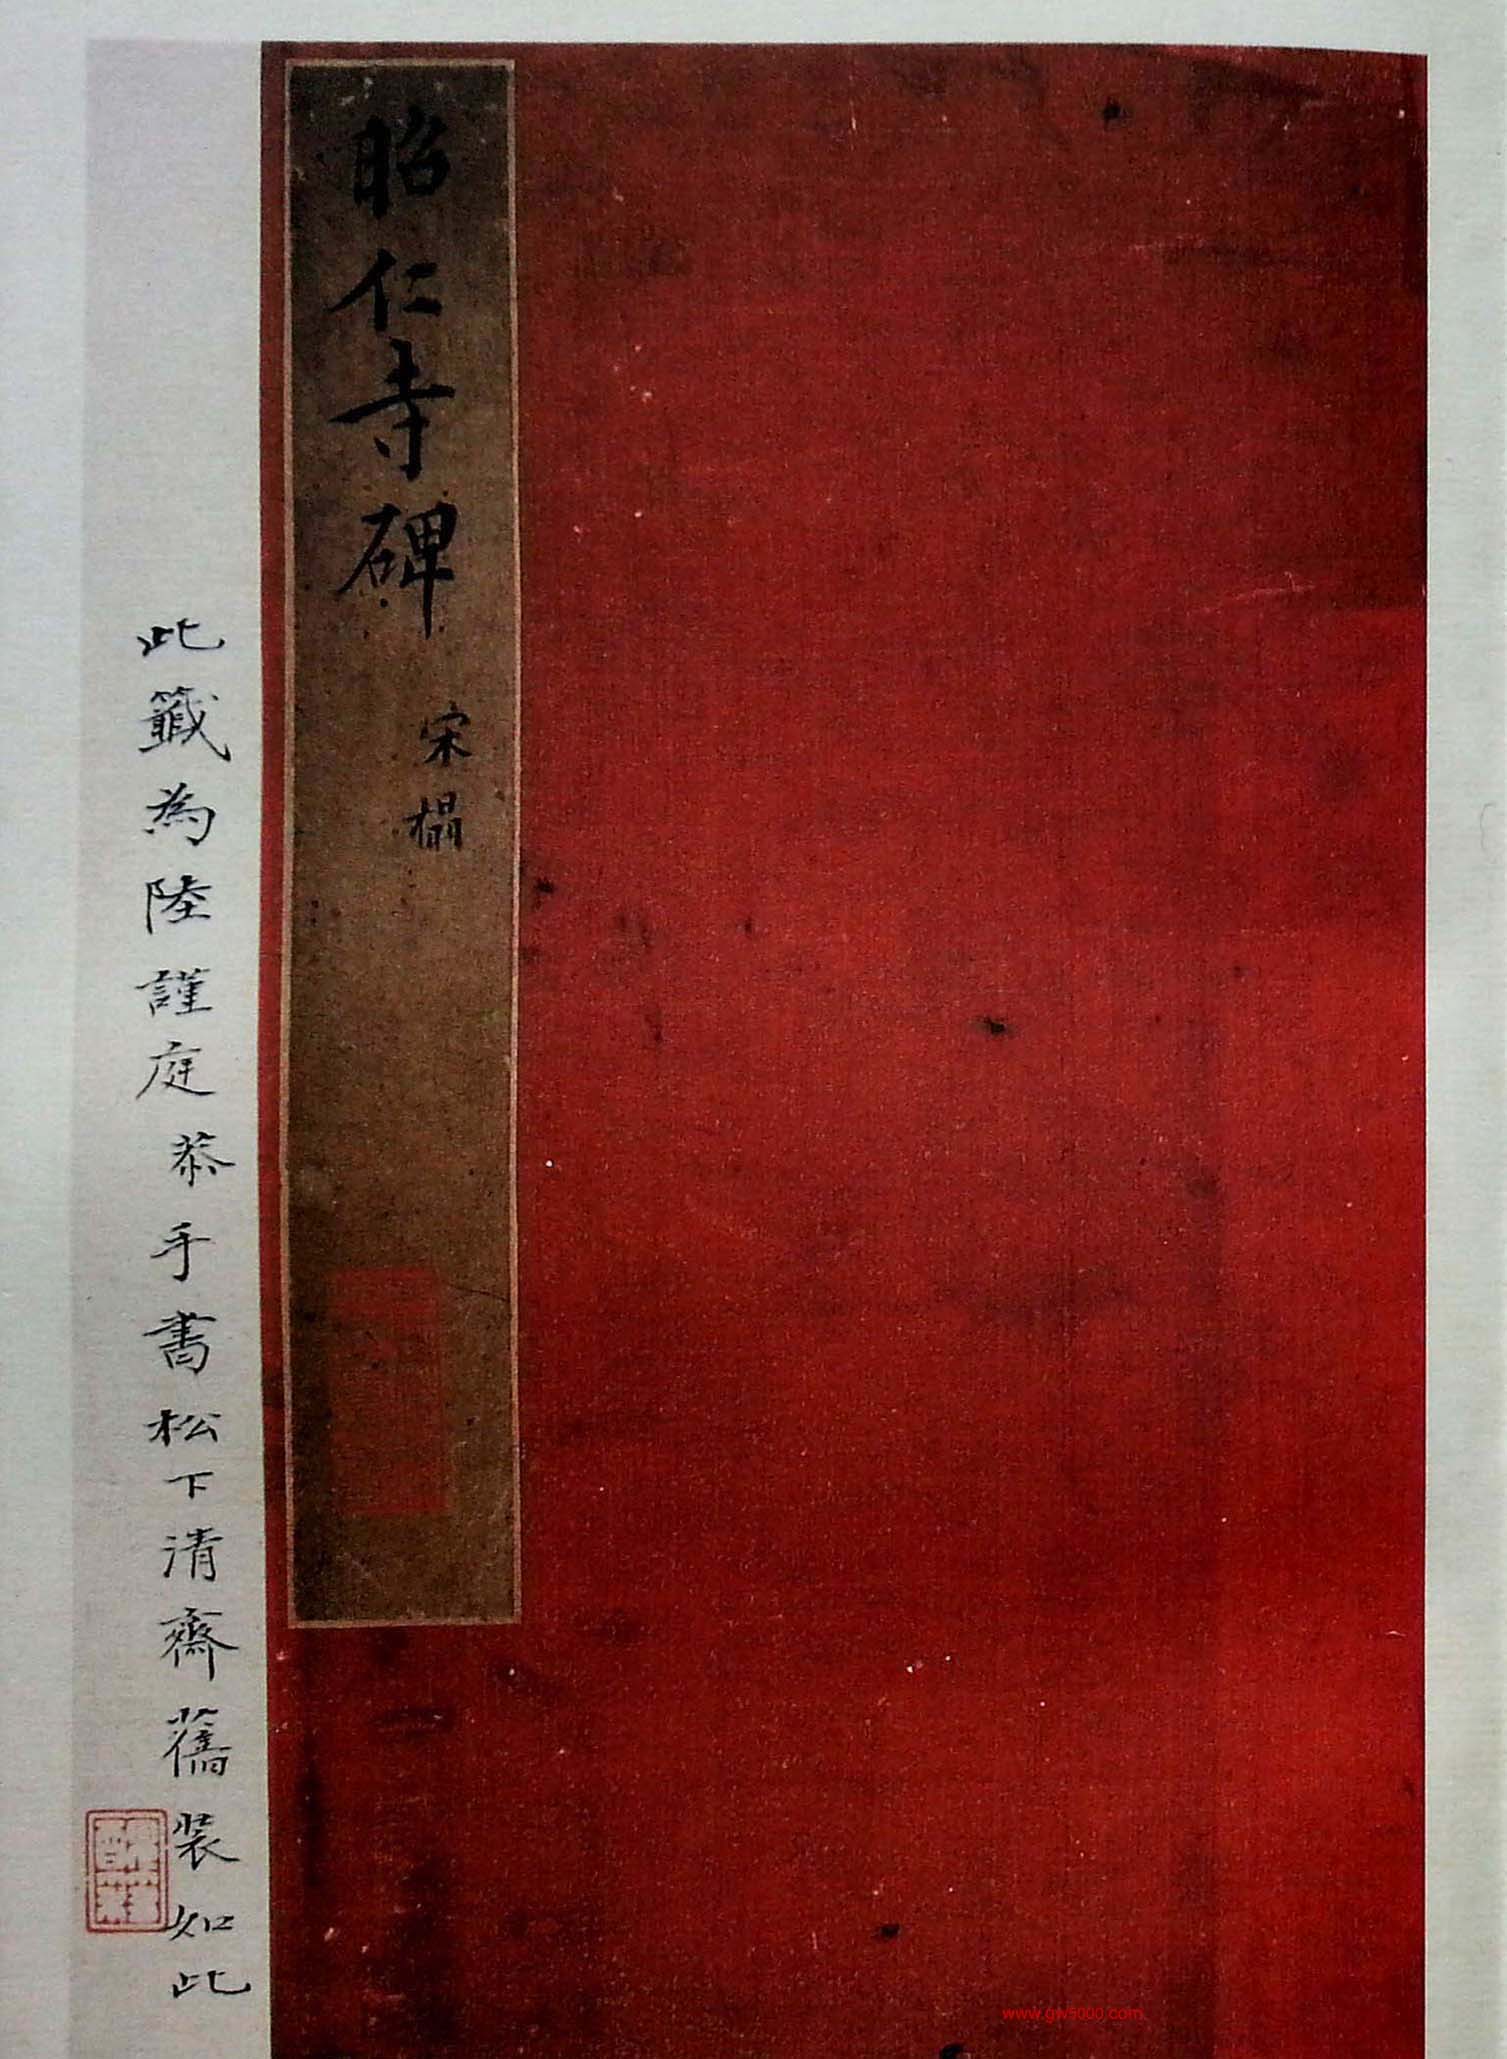 昭仁寺碑
宋搨
此籤為陸謹庭恭手書松下清齋舊裝如此
www.gw5000.com